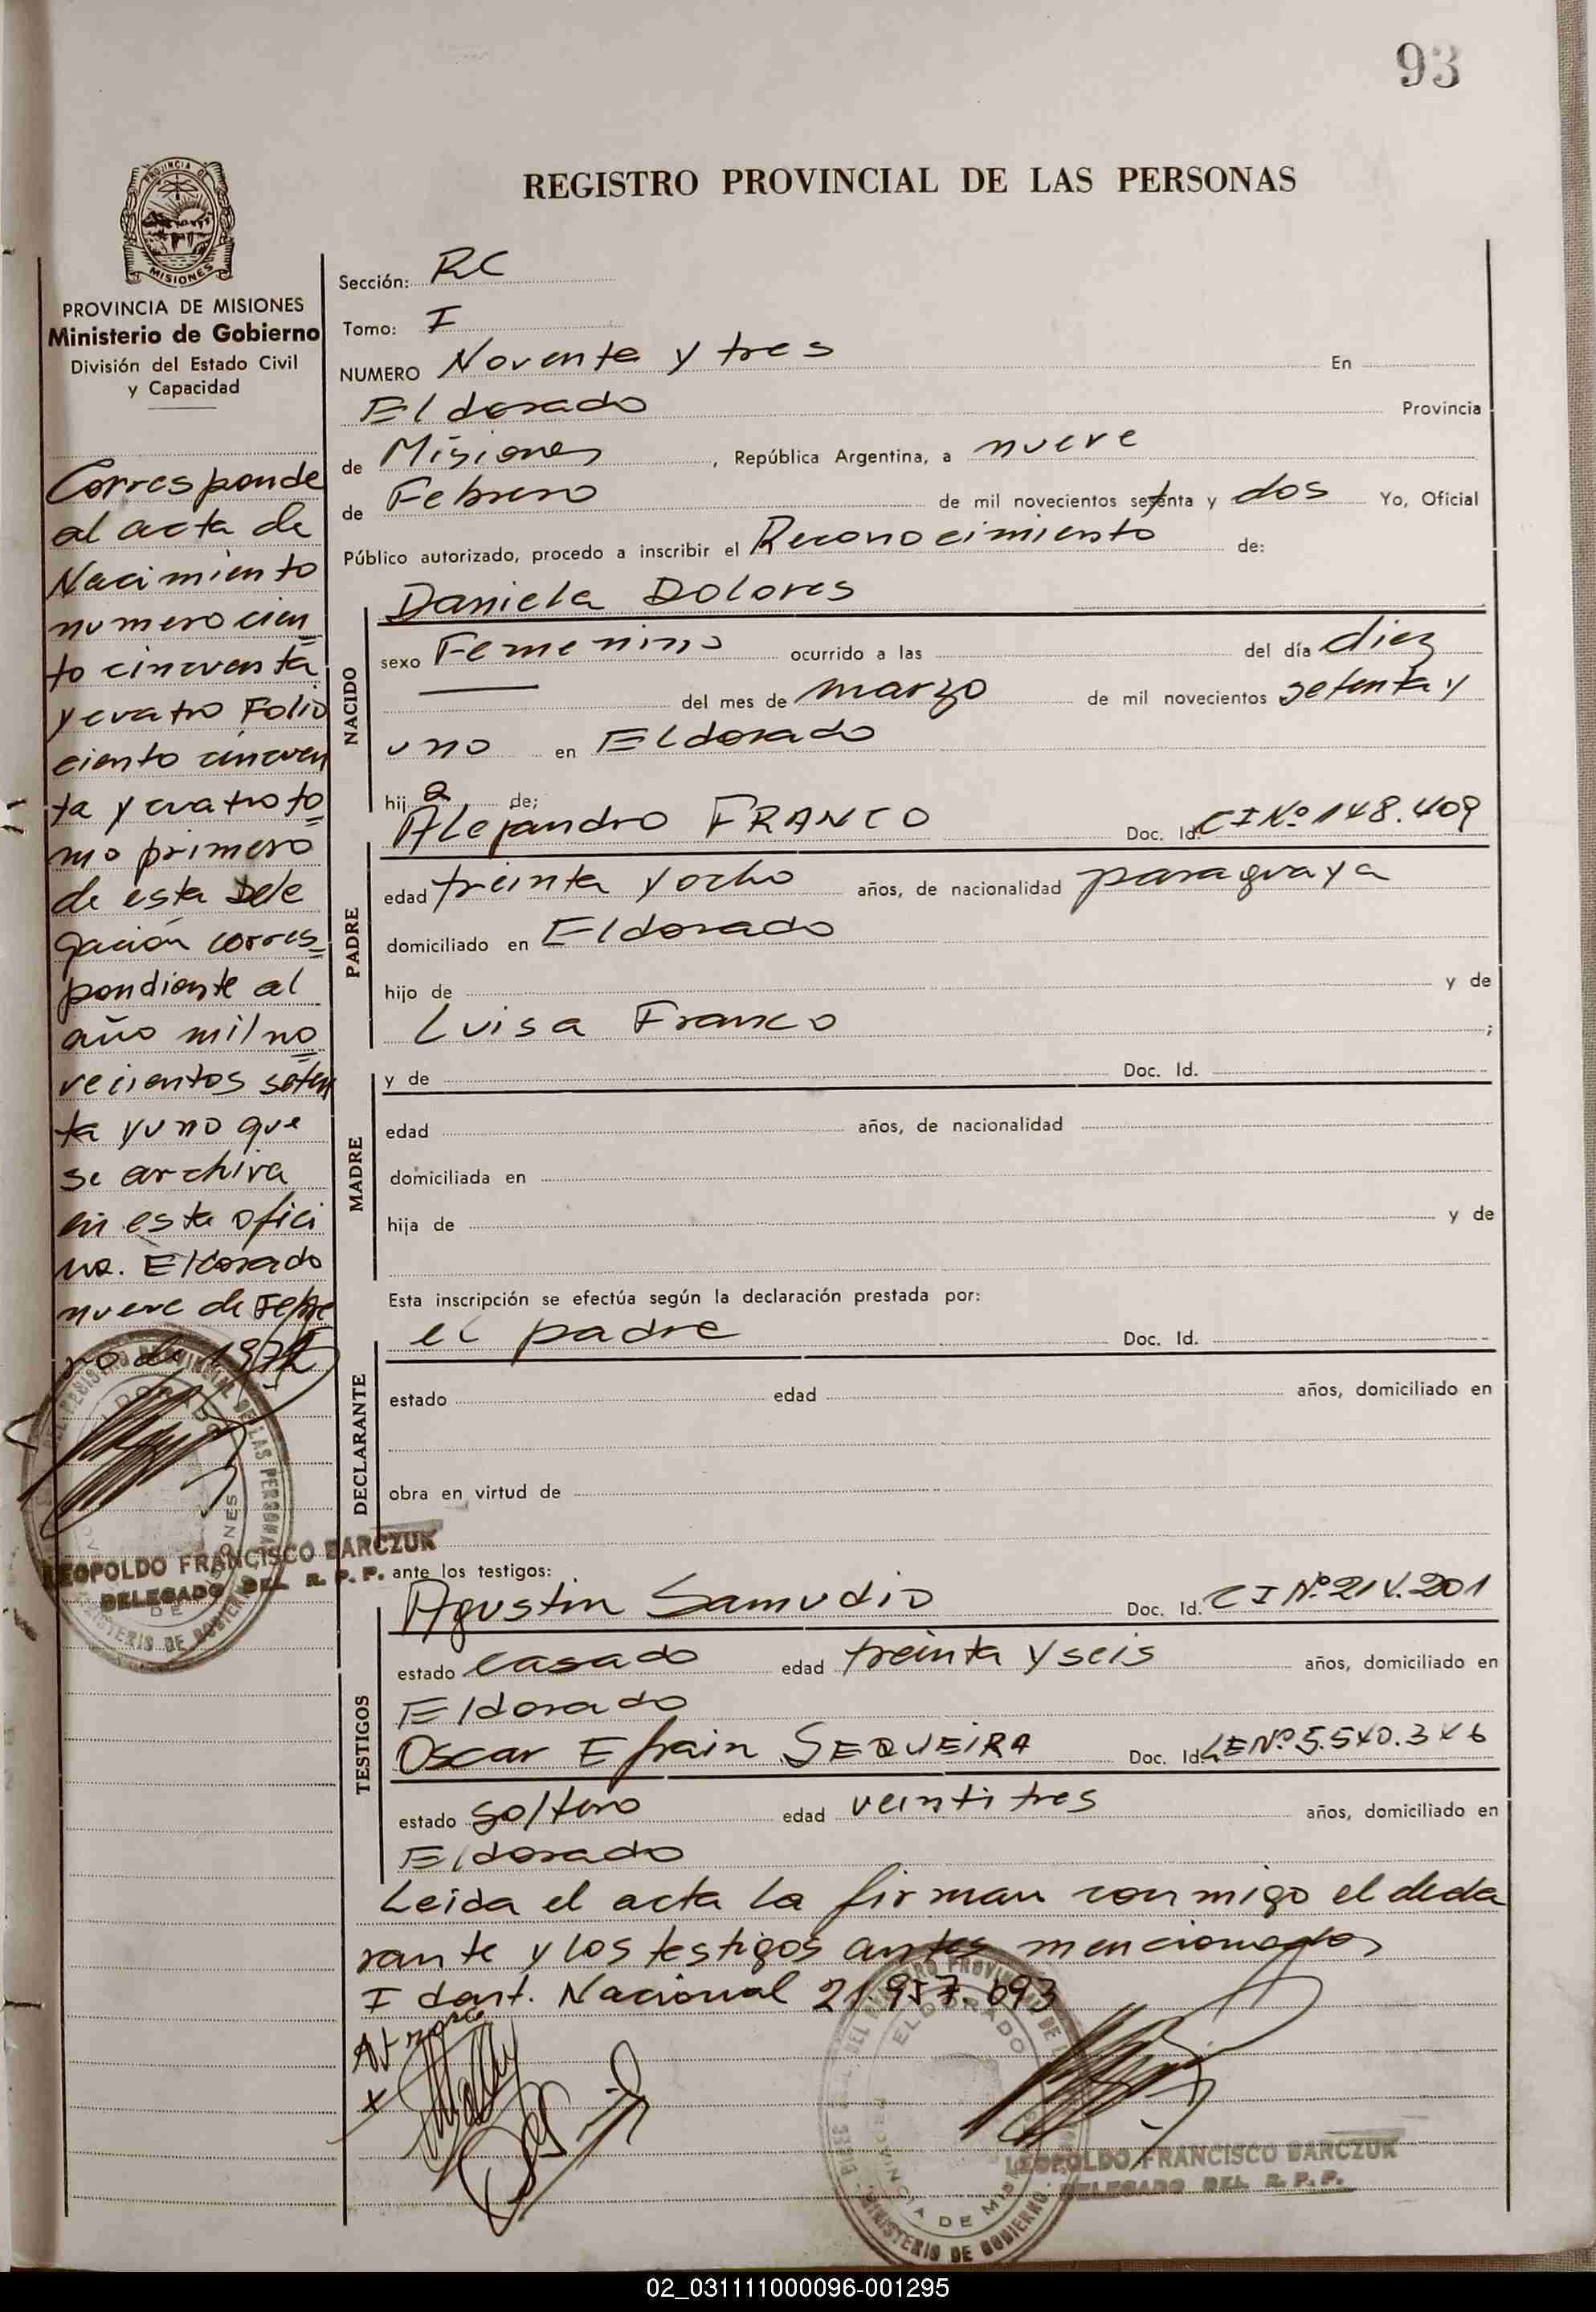 93
REGISTRO PROVINCIAL DE LAS PERSONAS
PROVINCIA DE
MISIONES
PROVINCIA DE MISIONES
Ministerio de Gobierno
División del Estado Civil
y Capacidad
Corresponde
al acta de
Nacimiento
numero cien
to cincuenta
y cuatro Folio
ciento cincuen
ta y cuatro to
mo primero
de esta Dele
gación corres
pondiente al
año mil no
vecientos seten
ta y uno que
se archiva
en esta ofici
na. Eldorado
nueve de Febre
ro de 1972
LEOPOLDO FRANCISCO BARCZUK
DELEGADO DEL R. P. P.
Sección: RC
Tomo: I
NUMERO Noventa y tres En
Eldorado Provincia
de Misiones, República Argentina, a nueve
de Febrero de mil novecientos setenta y dos Yo, Oficial
Público autorizado, procedo a inscribir el Reconocimiento de:
Daniela Dolores
NACIDO
sexo Femenino ocurrido a las del día diez
del mes de marzo de mil novecientos setenta y
uno en Eldorado
hija de;
Alejandro FRANCO Doc. Id. CI Nº 148.409
PADRE
edad treinta y ocho años, de nacionalidad paraguaya
domiciliado en Eldorado
hijo de y de
Luisa Franco ;
y de Doc. Id.
MADRE
edad años, de nacionalidad
domiciliada en
hija de y de
Esta inscripción se efectúa según la declaración prestada por:
el padre Doc. Id.
DECLARANTE
estado edad años, domiciliado en
obra en virtud de
ante los testigos:
Agustin Samudio Doc. Id. CI Nº 214.201
TESTIGOS
estado casado edad treinta y seis años, domiciliado en
Eldorado
Oscar Efrain SEQUEIRA Doc. Id. LE Nº 5.540.346
estado soltero edad veintitres años, domiciliado en
Eldorado
Leida el acta la firman conmigo el decla
rante y los testigos antes mencionados
Ident. Nacional 21.957.693
ELDORADO
PROVINCIA DE MISIONES
MINISTERIO DE GOBIERNO
LEOPOLDO FRANCISCO BARCZUK
DELEGADO DEL R. P. P.
02_031111000096-001295